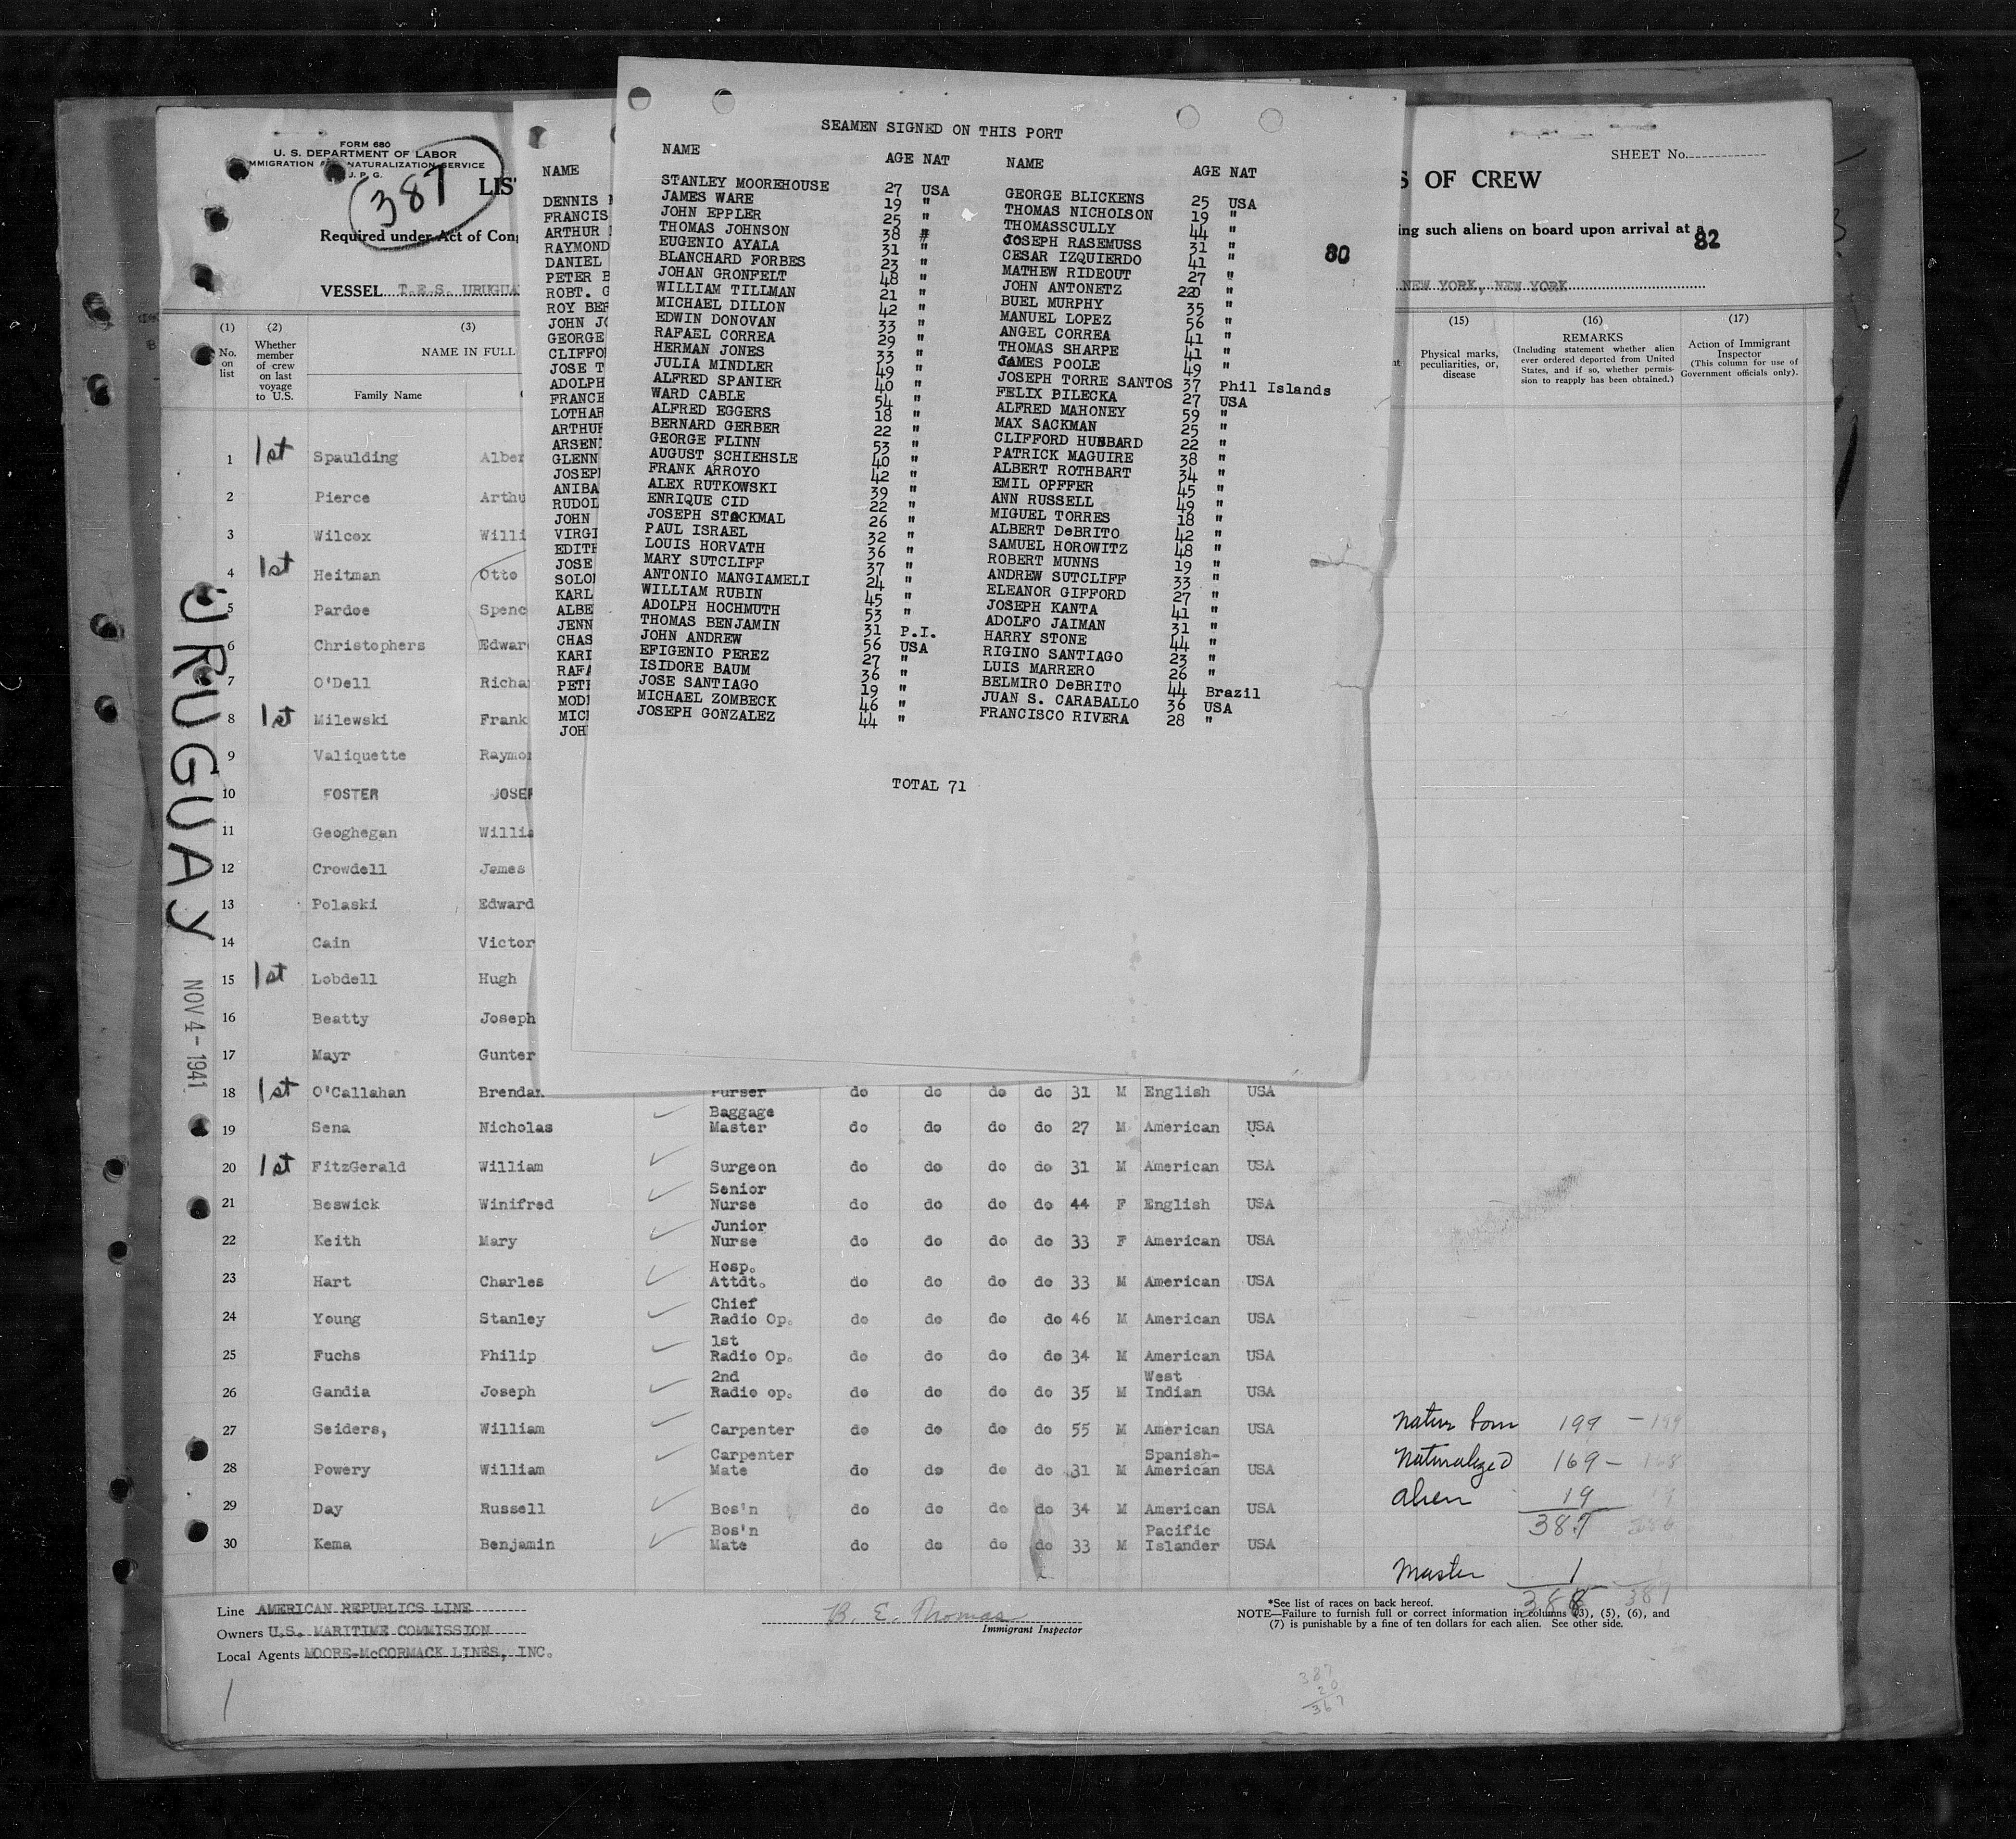 FORM 680
U. S. DEPARTMENT OF LABOR
IMMIGRATION AND NATURALIZATION SERVICE
J. P. G.
387
LIS
Required under Act of Cong
VESSEL T.E.S. URUGUA
SHEET No.
S OF CREW
ing such aliens on board upon arrival at a
82
NEW YORK, NEW YORK
80
SEAMEN SIGNED ON THIS PORT
NAME AGE NAT NAME AGE NAT
STANLEY MOOREHOUSE 27 USA GEORGE BLICKENS 25 USA
JAMES WARE 19 " THOMAS NICHOLSON 19 "
JOHN EPPLER 25 " THOMASSCULLY 44 "
THOMAS JOHNSON 38 " JOSEPH RASEMUSS 31 "
EUGENIO AYALA 31 " CESAR IZQUIERDO 41 "
BLANCHARD FORBES 23 " MATHEW RIDEOUT 27 "
JOHAN GRONFELT 48 " JOHN ANTONETZ 20 "
WILLIAM TILLMAN 21 " BUEL MURPHY 35 "
MICHAEL DILLON 42 " MANUEL LOPEZ 56 "
EDWIN DONOVAN 33 " ANGEL CORREA 41 "
RAFAEL CORREA 29 " THOMAS SHARPE 41 "
HERMAN JONES 33 " JAMES POOLE 49 "
JULIA MINDLER 49 " JOSEPH TORRE SANTOS 37 Phil Islands
ALFRED SPANIER 40 " FELIX PILECKA 27 USA
WARD CABLE 54 " ALFRED MAHONEY 59 "
ALFRED EGGERS 18 " MAX SACKMAN 25 "
BERNARD GERBER 22 " CLIFFORD HUBBARD 22 "
GEORGE FLINN 53 " PATRICK MAGUIRE 38 "
AUGUST SCHIEHSLE 40 " ALBERT ROTHBART 34 "
FRANK ARROYO 42 " EMIL OPFFER 45 "
ALEX RUTKOWSKI 39 " ANN RUSSELL 49 "
ENRIQUE CID 22 " MIGUEL TORRES 18 "
JOSEPH STACKMAL 26 " ALBERT DeBRITO 42 "
PAUL ISRAEL 32 " SAMUEL HOROWITZ 48 "
LOUIS HORVATH 36 " ROBERT MUNNS 19 "
MARY SUTCLIFF 37 " ANDREW SUTCLIFF 33 "
ANTONIO MANGIAMELI 24 " ELEANOR GIFFORD 27 "
WILLIAM RUBIN 45 " JOSEPH KANTA 41 "
ADOLPH HOCHMUTH 53 " ADOLFO JAIMAN 31 "
THOMAS BENJAMIN 31 P.I. HARRY STONE 44 "
JOHN ANDREW 56 USA RIGINO SANTIAGO 23 "
EFIGENIO PEREZ 27 " LUIS MARRERO 26 "
ISIDORE BAUM 36 " BELMIRO DeBRITO 44 Brazil
JOSE SANTIAGO 19 " JUAN S. CARABALLO 36 USA
MICHAEL ZOMBECK 46 " FRANCISCO RIVERA 28 "
JOSEPH GONZALEZ 44 "
TOTAL 71
NAME
DENNIS
FRANCIS
ARTHUR
RAYMOND
DANIEL
PETER B
ROBT. G
ROY BER
JOHN JO
GEORGE
CLIFFO
JOSE T
ADOLPH
FRANCE
LOTHAR
ARTHUR
ARSEN
GLENN
JOSEP
ANIBA
RUDOL
JOHN
VIRGI
EDITH
JOSE
SOLO
KARL
ALBE
JENN
CHAS
KARI
RAFA
PETE
MOD
MIC
JOH
(1) (2) (3) (15) (16) (17)
No. on list
Whether member of crew on last voyage to U.S.
NAME IN FULL
Family Name
Physical marks, peculiarities, or, disease
REMARKS
(Including statement whether alien ever ordered deported from United States, and if so, whether permission to reapply has been obtained.)
Action of Immigrant Inspector
(This column for use of Government officials only).
1 1st Spaulding Alber
2 Pierce Arthu
3 Wilcox Willi
4 1st Heitman Otto
5 Pardoe Spenc
6 Christophers Edwar
7 O'Dell Richa
8 1st Milewski Frank
9 Valiquette Raymo
10 FOSTER JOSEP
11 Geoghegan Willia
12 Crowdell James
13 Polaski Edward
14 Cain Victor
15 1st Lobdell Hugh
16 Beatty Joseph
17 Mayr Gunter
18 1st O'Callahan Brendan Purser do do do do 31 M English USA
19 Sena Nicholas Baggage Master do do do do 27 M American USA
20 1st FitzGerald William Surgeon do do do do 31 M American USA
21 Beswick Winifred Senior Nurse do do do do 44 F English USA
22 Keith Mary Junior Nurse do do do do 33 F American USA
23 Hart Charles Hosp. Attdt. do do do do 33 M American USA
24 Young Stanley Chief Radio Op. do do do do 46 M American USA
25 Fuchs Philip 1st Radio Op. do do do do 34 M American USA
26 Gandia Joseph 2nd Radio op. do do do do 35 M West Indian USA
27 Seiders, William Carpenter do do do do 55 M American USA
28 Powery William Carpenter Mate do do do do 31 M Spanish-American USA
29 Day Russell Bos'n do do do do 34 M American USA
30 Kema Benjamin Bos'n Mate do do do do 33 M Pacific Islander USA
URUGUAY
NOV 4 - 1941
Native born 199 - 199
Naturalized 169 - 168
alien 19 19
387 386
Master 1
388 387
Line AMERICAN REPUBLICS LINE
Owners U.S. MARITIME COMMISSION
Local Agents MOORE-McCORMACK LINES, INC.
B. E. Thomas
Immigrant Inspector
*See list of races on back hereof.
NOTE—Failure to furnish full or correct information in columns (3), (5), (6), and
(7) is punishable by a fine of ten dollars for each alien. See other side.
387
20
367